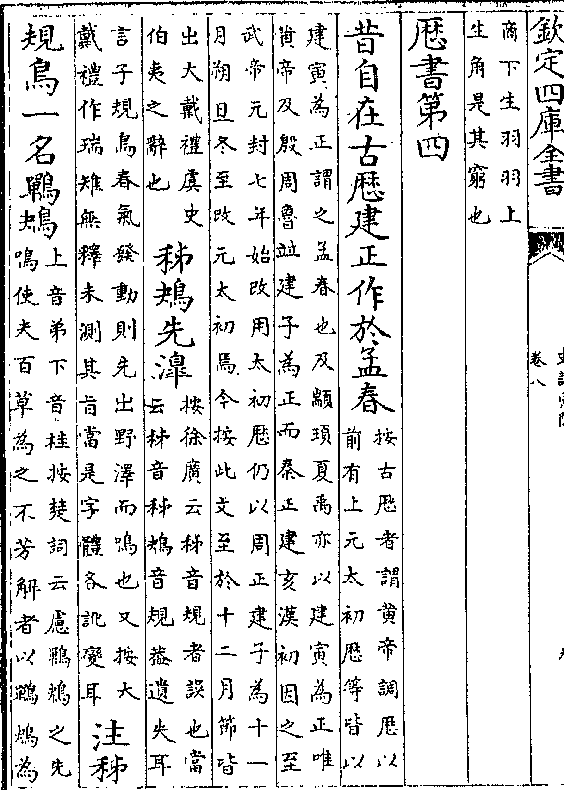 欽定四庫全書
卷八
商下生羽羽上
生角是其窮也
厯書第四
昔自在古厯建正作於孟春
按古厯者謂黄帝調厯以
前有上元太初厯等皆以
建寅為正謂之孟春也及顓頊夏禹亦以建寅為正唯
黄帝及殷周魯並建子為正而秦正建亥漢初因之至
武帝元封七年始改用太初厯仍以周正建子為十一
月朔旦冬至改元太初焉今按此文至於十二月節皆
出大戴禮虞史
伯夷之辭也
秭鴂先滜
按徐廣云秭音規者誤也當
云秭音秭鴂音規葢遺失耳
言子規鳥春氣發動則先出野澤而鳴也又按大
戴禮作瑞雉無釋未測其旨當是字體各訛變耳
注秭
規鳥一名鷤鴂
上音弟下音桂按楚詞云慮鷤鴂之先
鳴使夫百草為之不芳解者以鷤鴂為